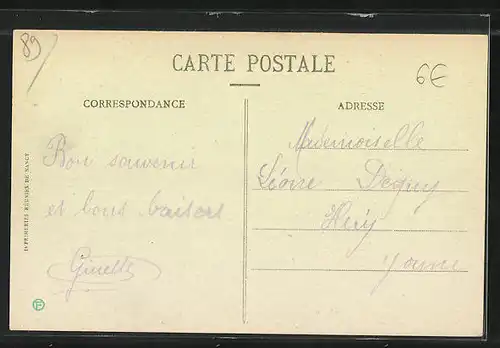 89
CARTE POSTALE
6€
CORRESPONDANCE
ADRESSE
Bon souvenir
et bons baisers
Ginette
Mademoiselle
Héry
Yonne
IMPRIMERIES REUNIES DE NANCY